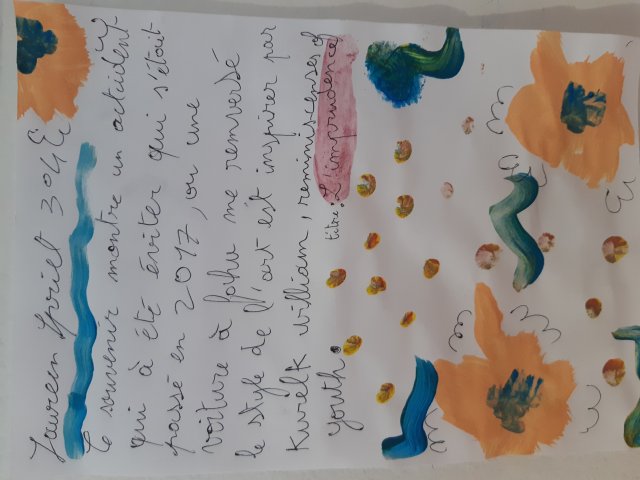 304 E
Le souvenir montre un accident
qui à été éviter qui s'était
passé en 2017, ou une
voiture à fahu me remversé
le style de l'art est inspirer par
Kurelk william, reminiscenses of
youth.
titre: L'imprudence